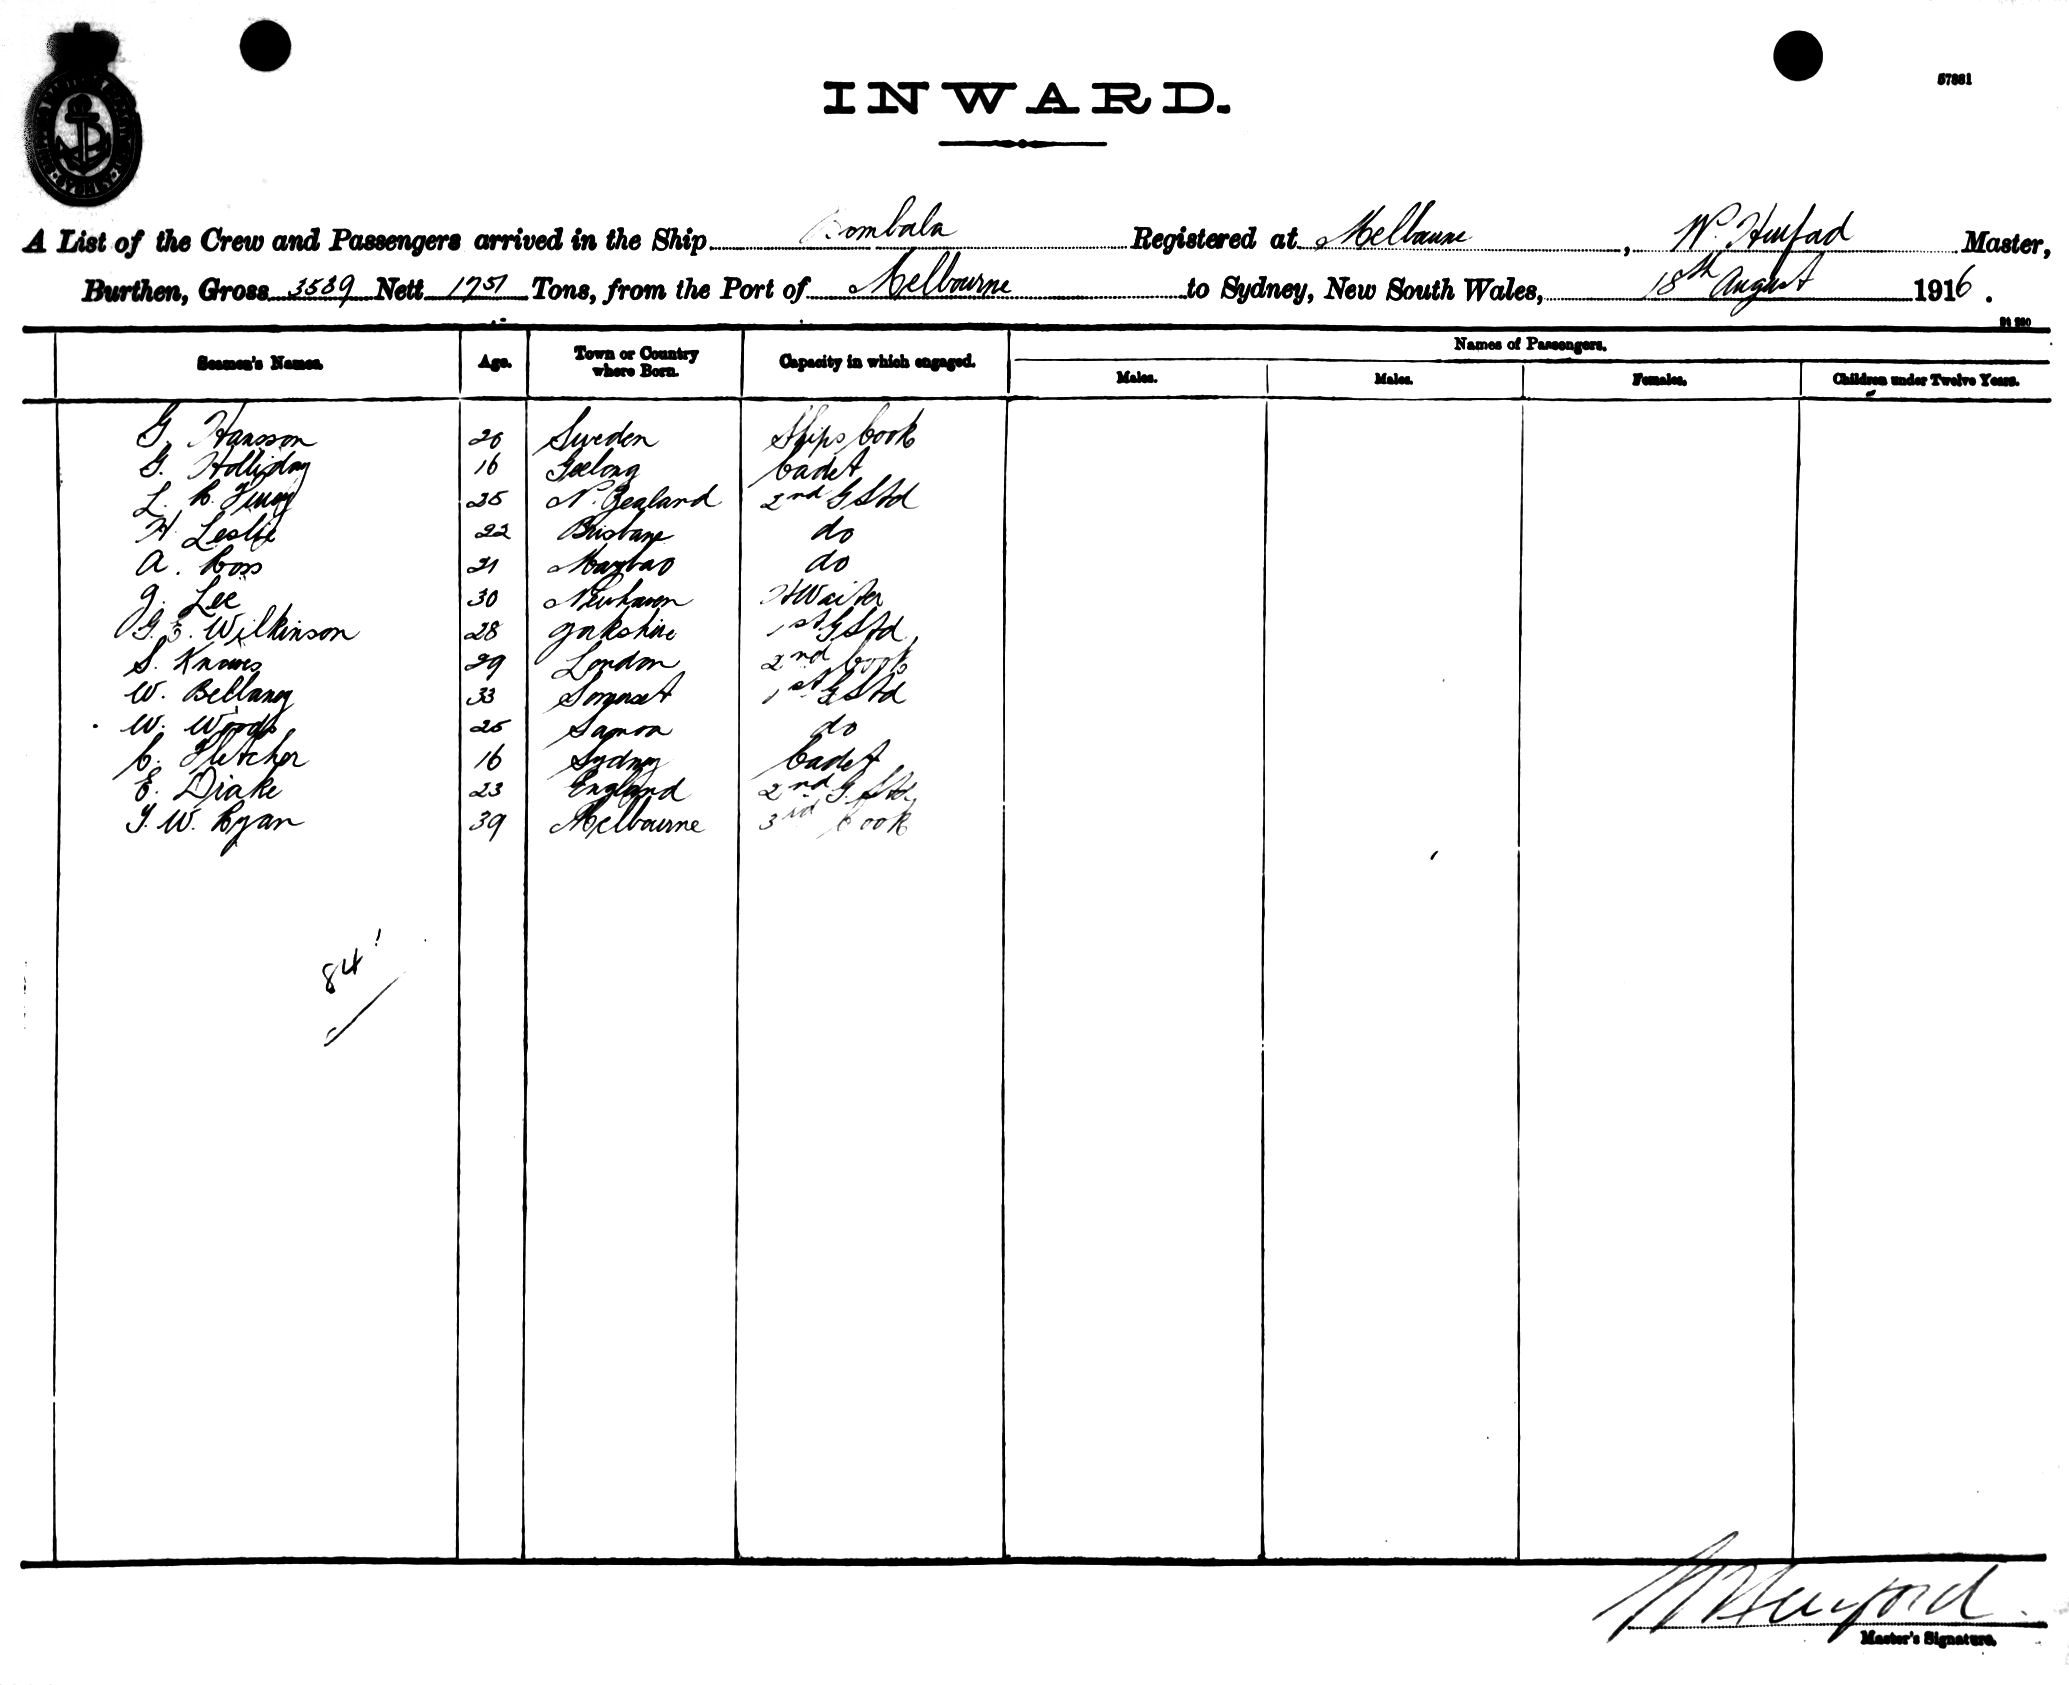 57881
INWARD.
A List of the Crew and Passengers arrived in the Ship Bombala Registered at Melbourne, W. Hurford Master,
Burthen, Gross 3589 Nett 1751 Tons, from the Port of Melbourne to Sydney, New South Wales, 18th August 1916.
Seamen's Names. Age. Town or Country where Born. Capacity in which engaged. Names of Passengers.
Males. Males. Females. Children under Twelve Years.
G. Hansson 26 Sweden Ships Cook
G. Holliday 16 Geelong Cadet
L. C. 25 N. Zealand 2nd G Std
H. Leslie 22 Brisbane do
A. Coss 21 Maryboro do
J. Lee 30 Newhaven H Waiter
G. E. Wilkinson 28 Yorkshire 1st G Std
S. Knowes 29 London 2nd Cook
W. Bellamy 33 Somerset 1st G Std
W. Woods 25 Samoa do
C. Fletcher 16 Sydney Cadet
E. Drake 23 England 2nd G. Std
T. W. Ryan 39 Melbourne 3rd Cook
84
W Hurford
Master's Signature.